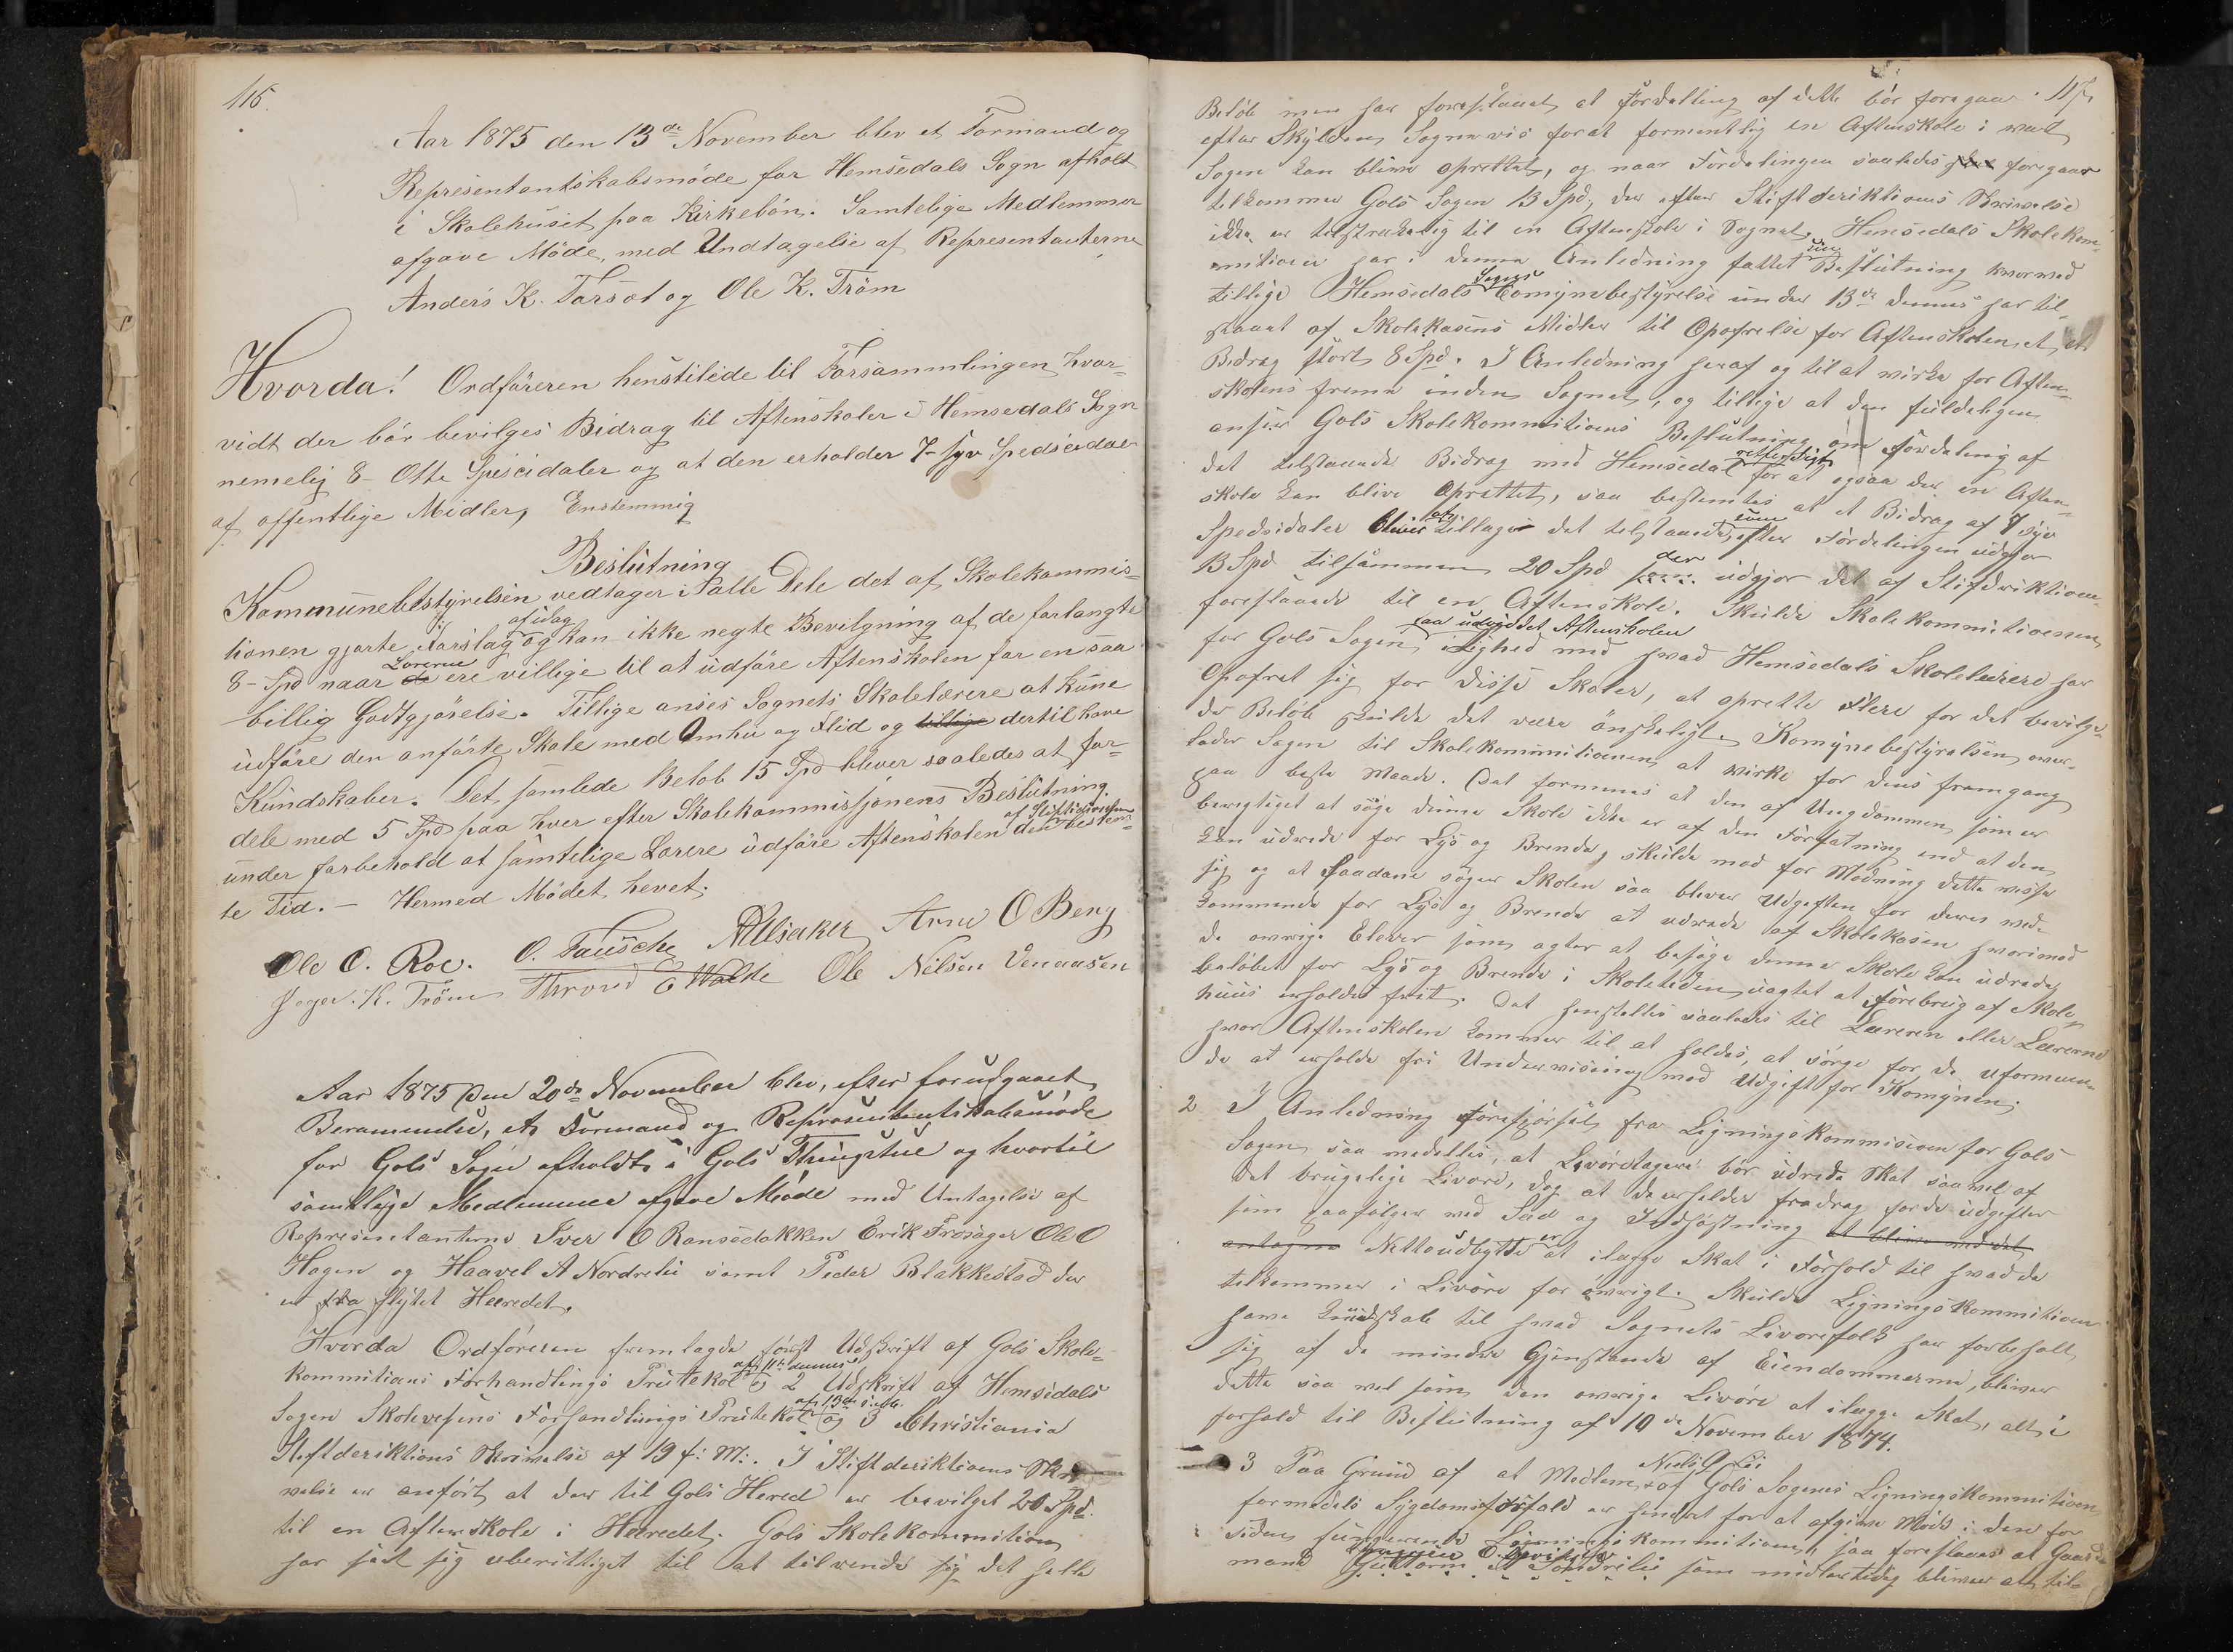 116.
Aar 1875 den 13de November blev et Formand og
Representantskabsmöde for Hemsedals Sogn afholt
i Skolehuset paa Kirkebön. Samtelige Medlemmer
afgave Möde, med Undtagelse af Representanterne
Anders K. Torset og Ole K. Tröm
Hvorda! Ordföreren henstilede til Forsammlingen hvor-
vidt der bör bevilges Bidrag til Aftenskoler i Hemsedals Sogn
nemelig 8 - Otte Speseidaler og at den erholder 7- syv Spedseidaler
af offentlige Midler, Enstemmig
Beslutning
Kommunebestyrelsen vedtager i alle Dele det af Skolekommis-
tionen gjorte Forslag af idag og kan ikke negte Bevilgning af de forlangte
8 - Spd naar de Lærerne ere villige til at udföre Aftenskolen for en saa
billig Godtgjörelse. Tillige anses Sognets Skolelærere at kune
udföre den anförte Skole med Omhu og Flid og tillige dertil have
Kundskaber. Det samlede Belöb 15 Spd bliver saaledes at for-
dele med 5 Spd paa hver efter Skolekommissjonens Beslutning.
under forbehold at samtelige Lærere udföre Aftenskolen den af Stiftsdirektionen bestem-
te Tid. - Hermed Mödet hevet.
Ole O. Roe. O. Fausche A Ulsaker Arne O Berg
K. Tröm E Wolde Ole Nilsen Venaasen
Aar 1875 den 20de November blev, efter forudgaaet
Berammelse, et Formand og Representantskabsmöde
for Gols Sogn afholdt i Gols Thingstue og hvortil
samtlige Medlemmer afgave Möde med Untagelse af
Representanterne Iver O Ransedokken Erik Frösager Ole O
Hagen og Haavel A Nordrelie samt Peder Blakkestad der
er fra flytet Heredet.
Hvorda Ordföreren fremlagde först Udskrift af Gols Skole-
kommitions Forhandlings Protekol af 11te dennes, 2 Udskrift af Hemsedals
Sogen Skolevesens Forhandlings Protekol af 13de s. M. og 3 Christiania
Stiftderiktions Skrivelse af 19 f: M:. I Stiftderiktionens Skri-
velse er anfört at der til Gols Hered er bevilget 20 Spd.
til en Aftenskole i Heredet. Gols Skolekommition
har sig uberettiget til at tilvende sig det hele
117.
Belöb men har foreslaaet at Fordelling af dette bör foregaar
efter Skylden Sognevis forat formentlig en Aftenskole i vert
Sogen kan blive oprettet, og naar Fordelingen saaledes skal foregaar
tilkommer Gols Sogen 13 Spd, der efter Stiftderiktions Skrivelse
ikke er tilstrækelig til en Aftenskole i Sognet. Hemsedals Skolekom-
mitionen har i denne Anledning fattet sin Beslutning hvorved
tillige Hemsedals Sogns Comynebestyrelse under 13de dennes har til-
staaet af Skolekasens Midler til Opofrelse for Aftenskolen et
Bidrag stort 8 Spd. I Anledning heraf og til at virke for Aften-
skolens fremme inden Sognet, og tillige at den fuldeligen
anser Gols Skolekommitions Beslutning om Fordeling af
det tilstaaede Bidrag med Hemsedal retferdigt for at ogsaa der en Aften-
skole kan blive oprettet, saa bestemtes at et Bidrag af 7 syv
Spedsidaler bliver at tillægge det tilstaaede, som efter Fordelingen udgjor
13 Spd tilsammen 20 Spd som der udgjör det af Stiftderiktionen
foreslaaede til en Aftenskole. Skulde Skolekommitionen
for Gols Sogen, i Lighed med saa udviddet Aftenskolen hvad Hemsedals Skolelærere har
Opofret sig for disse Skoler, at oprette flere for det bevilge-
de Belöb skulde det være önskeligt. Komynebestyrelsen over-
lader Sagen til Skolekommitionen at virke for dens fremgang
paa beste Maade. Det formenes at den af Ungdommen som er
berettiget at söge denne Skole ikke er af den Forfatning end at den
kan udrede for Lys og Brende, skulde mod formodning dette vise
sig og at saadane söger Skolen saa bliver Udgiften for deres ved-
kommende for Lys og Brende at udrede af Skolekasen hvorimod
de ovrige Elever som agter at besöge denne Skole kan udrede
belöbet for Lys og Brende i Skoletiden uagtet at Forebrug af Skole-
huus erholdes frit. Det henstilles saaledes til Læreren eller Lærerne
hvor Aftenskolen kommer til at holdes, at sörge for de uformuen-
de at erholde fri Undervisning mod Udgift for Komynen.
2 I Anledning Forespörsel fra Ligningskommisionen for Gols
Sogen saa meddelles, at Livöretagere bör udrede Skat saavel af
det brugelige Livöre, dog at de erholder fradrag for de udgifter
som paafölger ved Sæd og Indhöstning at blive med det
antagne Nettoudbytte er at ilægge Skat i Forhold til hvad de
tilkommer i Livöre for övrigt. Skulde Ligningskommitionen
have kundskab til hvad Sognets Livörefolk har forbeholt
sig af de mindre Gjenstande af Eiendommerne, bliver
dette saa vel som den ovrige Livöre at ilægge Skat, alt i
forhold til Beslutning af 10de November 1874.
3 Paa Grund af at Medlem af Niels O Lie Gols Sogens Ligningskommitionen
formedels Sygdomsforfald er hindret for at afgive Möde i den for
tiden fungerende Ligningskommition, saa foreslaaes at Gaard-
mand Guttorm Nordrelie som midlertidig bliver at til-